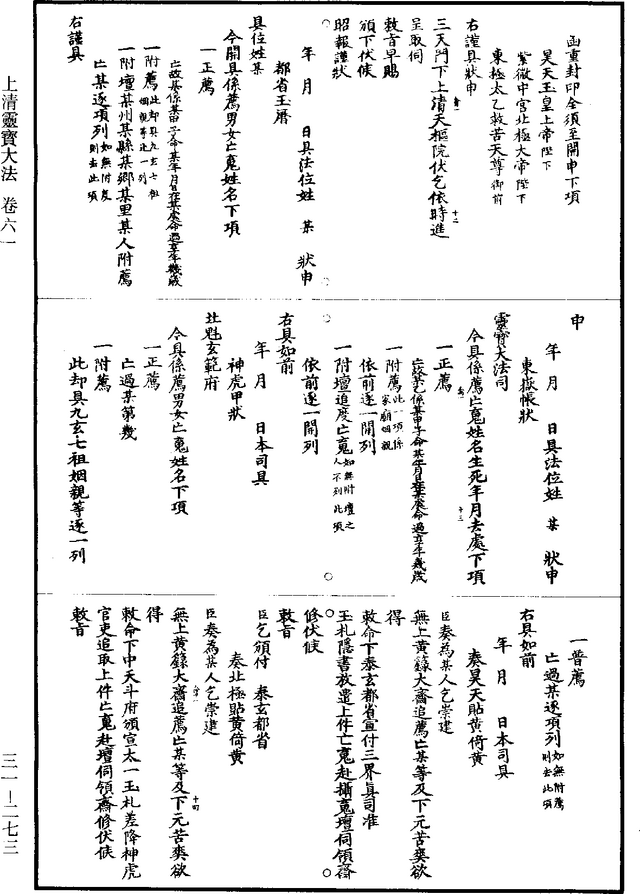 上清靈寶大法 卷六一
三一—二七三
函重封印全須至開申下項
昊天玉皇上帝陛下
紫微中宮北極大帝陛下
東極太乙救苦天尊御前
右謹具狀申
三天門下上清天樞院伏乞依時進
十二
呈取伺
敕旨早賜
頒下伏候
昭報謹狀
年 月 日具法位姓 某 狀申
都省玉曆
具位姓某
今開具係薦男女亡䰟姓名下項
一正薦
亡故某係某甲子命某年月日在某處命過享年幾歲
一附薦此却具九玄七祖姻親等逐一列
一附壇某州某縣某鄉某里某人附薦
亡某逐項列如無附度則去此項
右謹具
申
年 月 日具法位姓 某 狀申
東嶽帳狀
靈寶大法司
今具係薦亡䰟姓名生死年月去處下項
十三
一正薦
亡故某乙係某甲子命某年月日在某處命過享年幾歲
一附薦此一項係家廟姻親
依前逐一開列
一附壇追度亡䰟如無附壇之人不列此項
依前逐一開列
右具如前
年 月 日本司具
神虎甲狀
北魁玄範府
今具係薦男女亡䰟姓名下項
一正薦
亡過某第幾
一附薦
此却具九玄七祖姻親等逐一列
一普薦
亡過某逐項列如無附薦則去此項
右具如前
年 月 日本司具
奏昊天貼黄倚黄
臣奏為某人乞崇建
無上黄籙大齋追薦亡某等及下元苦爽欲
得
敕命下泰玄都省宣付三界真司准
玉札隱書放遣上件亡䰟赴攝䰟壇伺領齋
修伏候
敕旨
臣乞頒付 泰玄都省
奏北極貼黄倚黄
臣奏為某人乞崇建
無上黄籙大齋追薦亡某等及下元苦爽欲
十四
得
敕命下中天斗府頒宣太一玉札差降神虎
官吏追取上件亡䰟赴壇伺領齋修伏候
敕旨